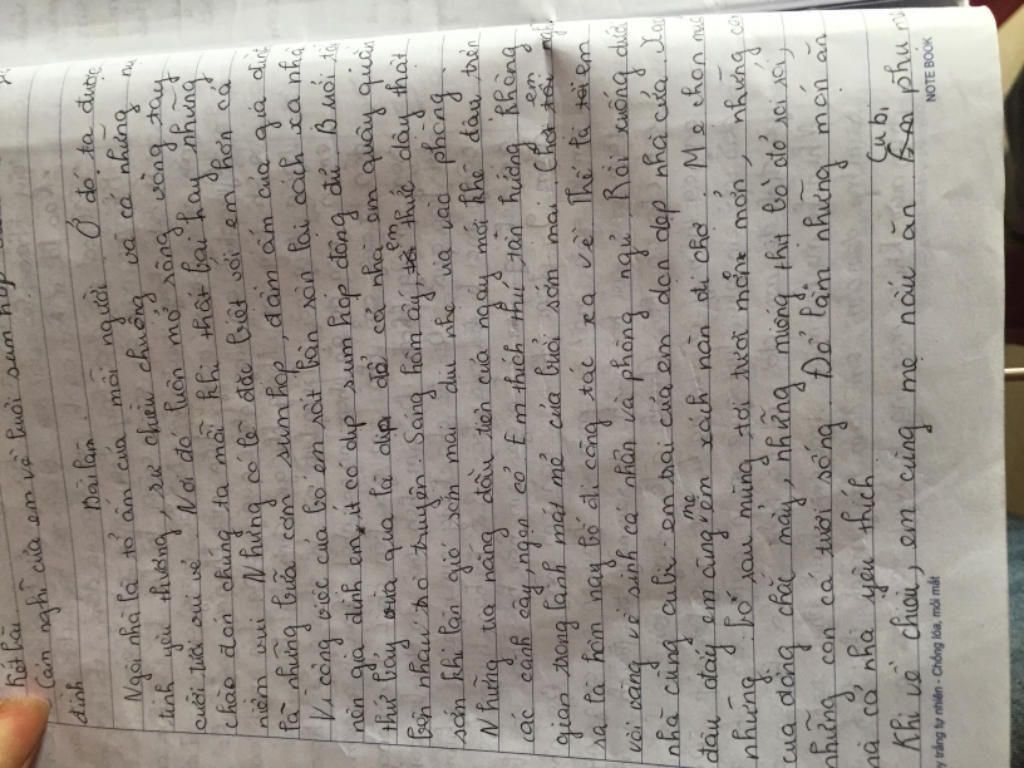 hỏi là
Cảm nghĩ của em về buổi sum họp
đình
Bài làm
Ngôi nhà là tổ ấm của mỗi người Ở đó ta được
tình yêu thương, sự chiều chuộng và cả những nụ
cười tươi vui vẻ Nơi đó luôn mở rộng vòng tay
chào đón chúng ta mỗi khi thất bại hay những
niềm vui Nhưng có lẽ đặc biệt với em hơn cả
là những bữa cơm sum họp, đầm ấm của gia đình
Vì công việc của bố em rất bận rộn lại cách xa nhà
nên gia đình em ít có dịp sum họp đông đủ Buổi tối
thứ bảy vừa qua là dịp để cả nhà em quây quần
bên nhau, trò truyện Sáng hôm ấy em thức dậy thật
sớm khi làn gió sớm mai dịu nhẹ ùa vào phòng.
Những tia nắng đầu tiên của ngày mới khẽ đậu trên
các cành cây ngọn cỏ Em thích thú tận hưởng không
gian trong lành mát mẻ của buổi sớm mai. Chợt tôi em
ra là hôm nay bố đi công tác xa về Thế là tôi em
vội vàng vệ sinh cá nhân và phòng ngủ Rồi xuống dưới
nhà cùng cu bi em sai của em dọn dẹp nhà cửa. Xong
đâu đấy em cùng mẹ xách nàn đi chợ Mẹ chọn mua
những bó rau mừng tơi tươi mơn mởn, những con
cua đồng chắc mẩy, những miếng thịt bò đỏ roi rói,
những con cá tươi sống Đó toàn những món ăn
mà cả nhà yêu thích
Khi về chợ, em cùng mẹ nấu ăn cu bi phụ
y trắng tự nhiên - Chống lóa, mỏi mắt
NOTE BOOK